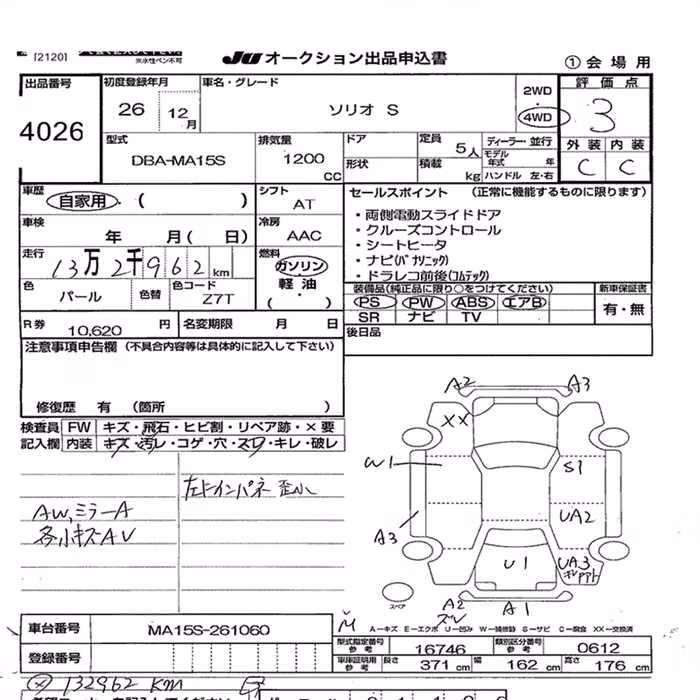 [2120] ※水性ペン不可 JU オークション出品申込書 ①会場用
出品番号 初度登録年月 車名・グレード 2WD 評価点
4026 26 12月 ソリオ S ・ 4WD 3
型式 排気量 ドア 定員 ディーラー・並行 外装 内装
DBA-MA15S 1200 CC 形状 5人 モデル年式 年 C C
積載 kg ハンドル 左・右
車歴 シフト セールスポイント (正常に機能するものに限ります)
自家用・( ) AT
・両側電動スライドドア
車検 冷房 ・クルーズコントロール
年 月( 日) AAC ・シートヒータ
走行 燃料 ・ナビ(パナソニック)
13万2千962km ガソリン ・ドラレコ前後(コムテック)
色 色替 色コード 軽油 装備品(純正品に限り○をつけてください) 新車保証書
パール Z7T ・( ) PS PW ABS エアB 有・無
SR ナビ TV
R券 10,620 円 名変期限 月 日 後日品
注意事項申告欄 (不具合内容等は具体的に記入して下さい)
修復歴 有 (箇所 )
検査員 FW キズ・飛石・ヒビ割・リペア跡・×要
記入欄 内装 キズ・汚レ・コゲ・穴・スレ・キレ・破レ
AW,ミラーA
各小キズAU
A2 A3
XX
W1 S1
UA2
A3
U1 UA3
スペア A2 A1
A-キズ E-エクボ U-凹み W-補修跡 S-サビ C-腐食 XX-交換済
車台番号 MA15S-261060 型式指定番号 参考 16746 類別区分番号 参考 0612
登録番号 車庫証明用 参考 長さ 371 cm 幅 162 cm 高さ 176 cm
132962 KM